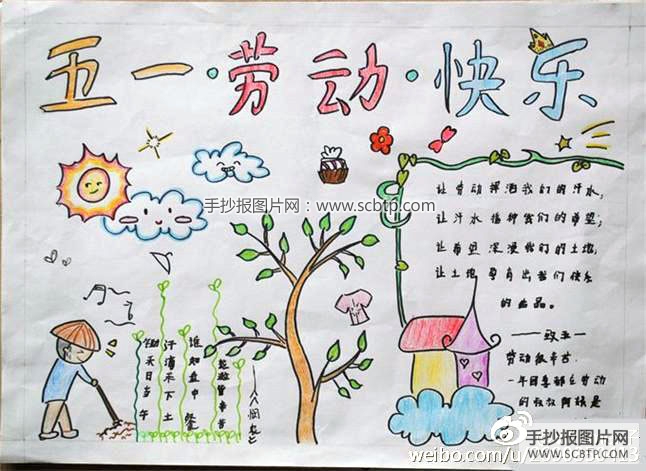 五一·劳动·快乐
手抄报图片网：www.scbtp.com
让劳动挥洒我们的汗水，
让汗水播种我们的希望；
让希望深浸我们的土地，
让土地孕育出我们快乐
的果品。
——致五一
劳动很辛苦
一年四季都在劳动
的叔叔阿姨是
锄禾日当午
汗滴禾下土
谁知盘中餐
粒粒皆辛苦
——《悯农》
手抄报图片网
WWW.SCBTP.COM
weibo.com/u/